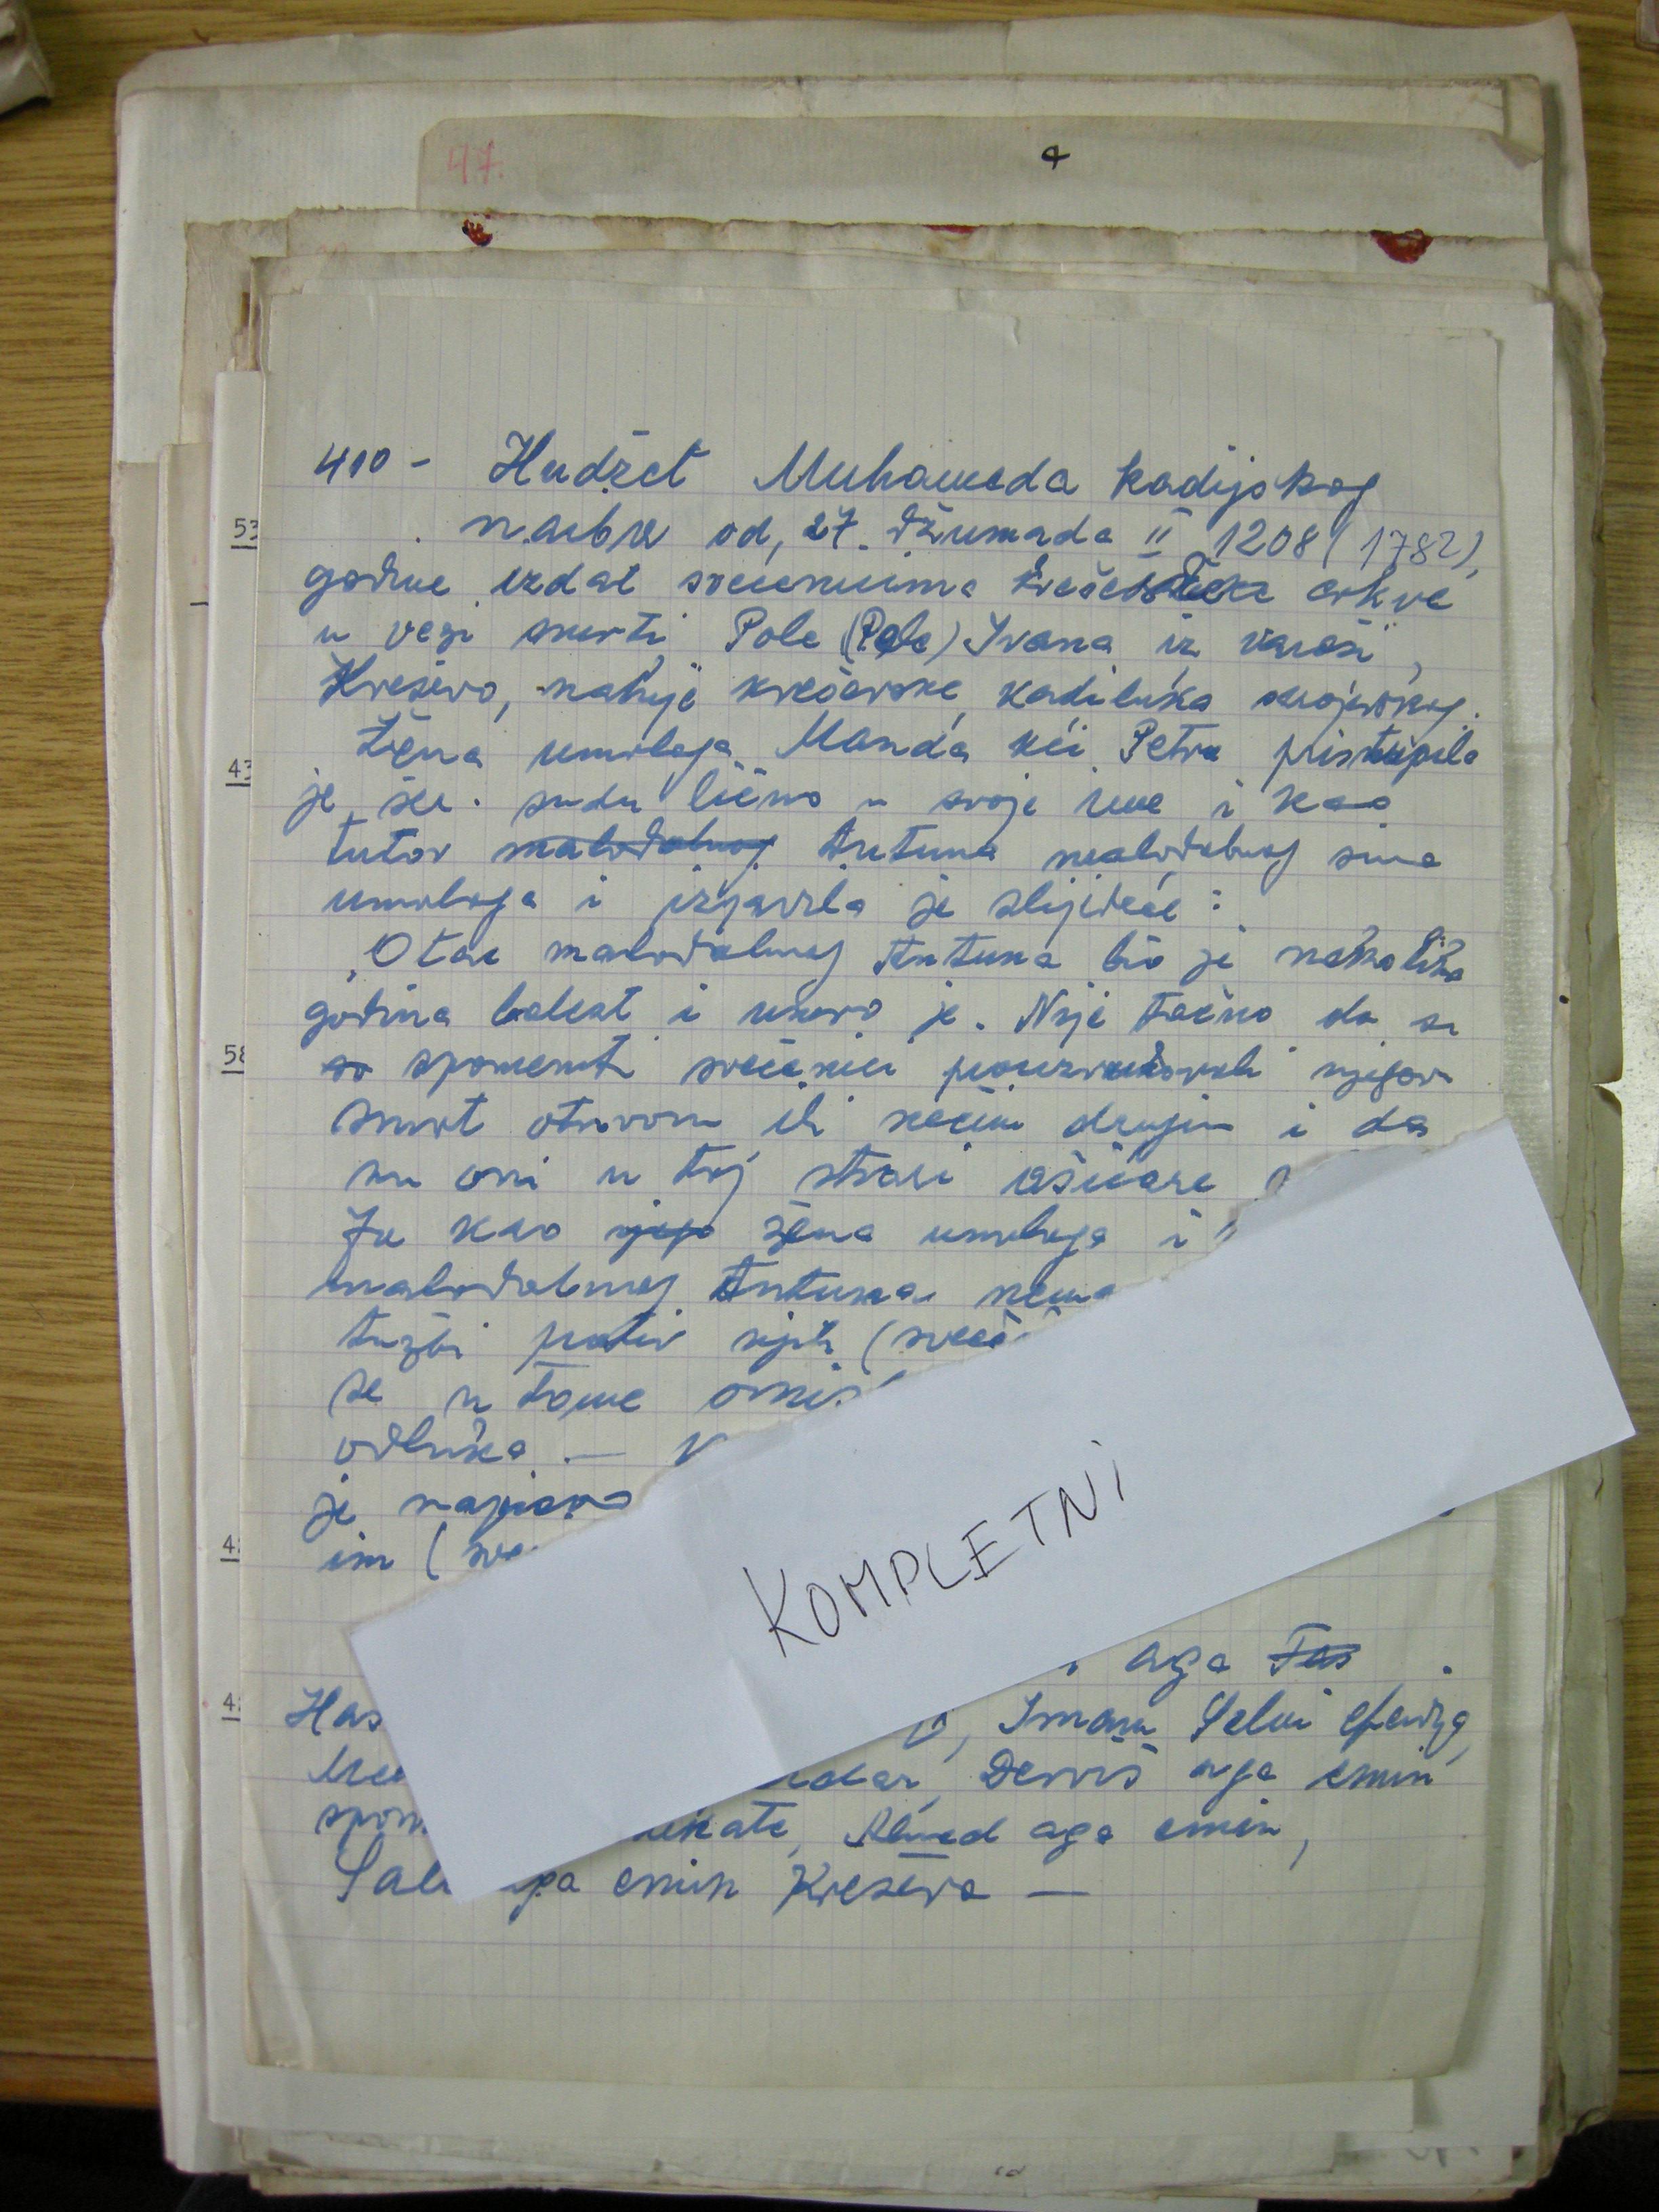 47.
4
53
43
58
4
4
410 - Hudžet Muhameda kadijskog
naiba od, 27. Džumada II 1208 (1782),
godine izdat svećenicima crkve
u vezi smrti Pole (Pale) Ivana iz varoši
Kreševo, nahije kreševske, kadiluka sarajevskog.
Žena umrloga Manda kći Petra pristupila
je šer. sudu lično u svoje ime i kao
tutor malodobnog Antuna malodobnog sina
umrloga i izjavila je slijedeće:
„Otac malodobnog Antuna bio je nekoliko
godina bolest i umro je. Nije tačno da su
spomenuti svećenici prouzrokovali njegovu
smrt otrovom ili nečim drugim i da
su oni u toj stvari
Ja kao njego žena umrloga i
malodobnog Antuna nema
tužbi protiv njih (sveć
se u tome
odluka —
je napisan
im (sve
KOMPLETNI
aga Fas
Has , Imam Selim efendija,
Mu dar, Derviš aga emin
spom kate, Ahmed aga emin,
Sali aga emin Kreševa —